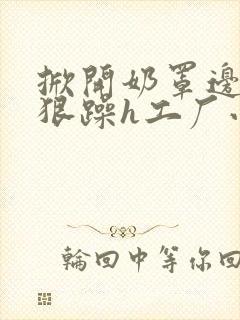 掀開奶罩邊
狠躁h工厂小
輪回中等你回